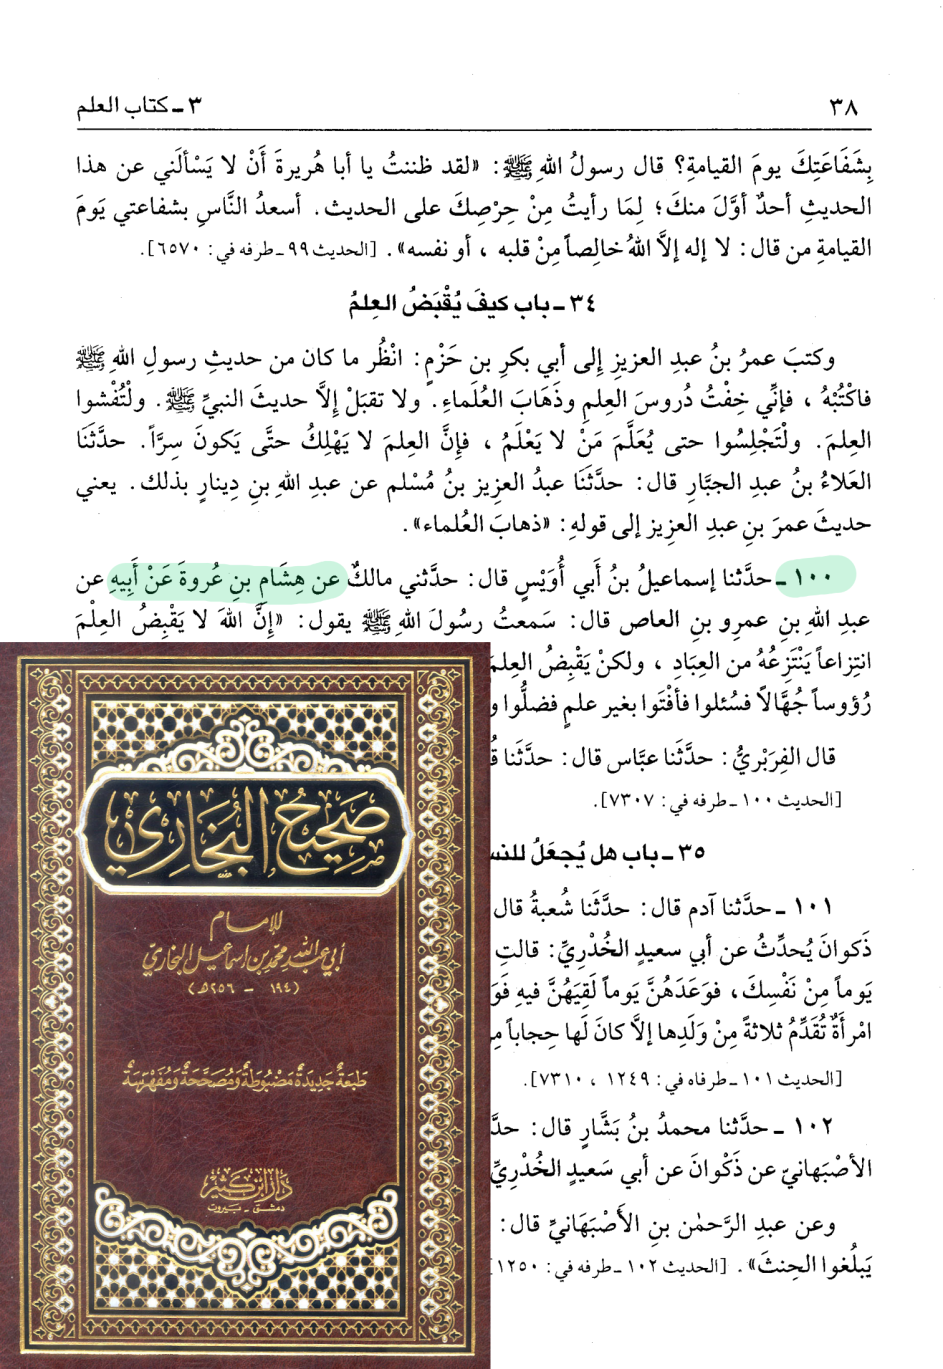 ٣٨
٣ ـ كتاب العلم
بِشَفَاعَتِكَ يومَ القيامةِ؟ قال رسولُ اللهِ ﷺ: «لقد ظننتُ يا أبا هُريرةَ أَنْ لا يَسْألَني عن هذا
الحديثِ أحدٌ أوَّلَ منكَ؛ لِمَا رأيتُ مِنْ حِرْصِكَ على الحديث. أسعدُ النَّاسِ بشفاعتي يَومَ
القيامةِ من قال: لا إله إلاَّ اللهُ خالِصاً مِنْ قلبه ، أو نفسه». [الحديث ٩٩ ـ طرفه في: ٦٥٧٠].
٣٤ ـ باب كيفَ يُقْبَضُ العِلمُ
وكتبَ عمرُ بنُ عبدِ العزيزِ إلى أبي بكرِ بن حَزْمٍ: انْظُر ما كان من حديثِ رسولِ اللهِ ﷺ
فاكْتُبْهُ ، فإنِّي خِفْتُ دُروسَ العِلمِ وذَهَابَ العُلَماءِ. ولا تقبَلْ إلاَّ حديثَ النبيِّ ﷺ. ولْتُفْشوا
العِلمَ. ولْتَجْلِسُوا حتى يُعَلَّمَ مَنْ لا يَعْلَمُ ، فإنَّ العِلمَ لا يَهْلِكُ حتَّى يَكونَ سِرَّاً. حدَّثَنَا
العَلاءُ بنُ عبدِ الجبَّارِ قال: حدَّثَنَا عبدُ العزيز بنُ مُسْلم عن عبدِ اللهِ بنِ دِينارٍ بذلك. يعني
حديثَ عمرَ بنِ عبدِ العزيز إلى قولهِ: «ذهابَ العُلماء».
١٠٠ ـ حدَّثنا إسماعيلُ بنُ أَبي أُوَيْسٍ قال: حدَّثني مالكٌ عن هِشَامِ بنِ عُروةَ عَنْ أَبِيهِ عن
عبدِ اللهِ بنِ عمرِو بنِ العاص قال: سَمعتُ رسُولَ اللهِ ﷺ يقول: «إنَّ اللهَ لا يَقْبِضُ العِلْمَ
انتِزاعاً يَنْتَزِعُهُ من العِبَادِ ، ولكنْ يَقْبِضُ العِلمَ
رُؤوساً جُهَّالاً فسُئلوا فأفْتَوا بغير علمٍ فضلُّوا و
قال الفِرَبْريُّ: حدَّثَنا عبَّاس قال: حدَّثَنا
[الحديث ١٠٠ ـ طرفه في: ٧٣٠٧].
٣٥ ـ باب هل يُجعَلُ
١٠١ ـ حدَّثنا آدم قال: حدَّثَنا شُعبةُ قال
ذَكوانَ يُحدِّثُ عن أبي سعيدٍ الخُدْريِّ: قالتِ
يَوماً مِنْ نَفْسِكَ، فوَعَدَهُنَّ يَوماً لَقِيَهُنَّ فيهِ
امْرأَةٌ تُقَدِّمُ ثلاثةً مِنْ وَلَدِها إلاَّ كانَ لَها حِجاباً
[الحديث ١٠١ ـ طرفاه في: ١٢٤٩ ، ٧٣١٠].
١٠٢ ـ حدَّثنا محمدُ بنُ بَشَّارٍ قال:
الأصْبَهانيّ عن ذَكْوانَ عن أبي سَعيدٍ الخُدْريِّ
وعن عبدِ الرَّحمٰن بنِ الأَصْبَهَانيِّ قال:
يَبلُغوا الحِنثَ». [الحديث ١٠٢ ـ طرفه في: ١٢٥٠]
صَحِيحُ البُخَارِي
للإمام
أبي عبد الله محمد بن اسماعيل البخاري
(١٩٤ - ٢٥٦ هـ)
طَبعَة جَديدَة مَضبُوطَة وَمُصَحَّحَة وَمُفَهْرَسَة
دار ابن كثير
دمشق - بيروت